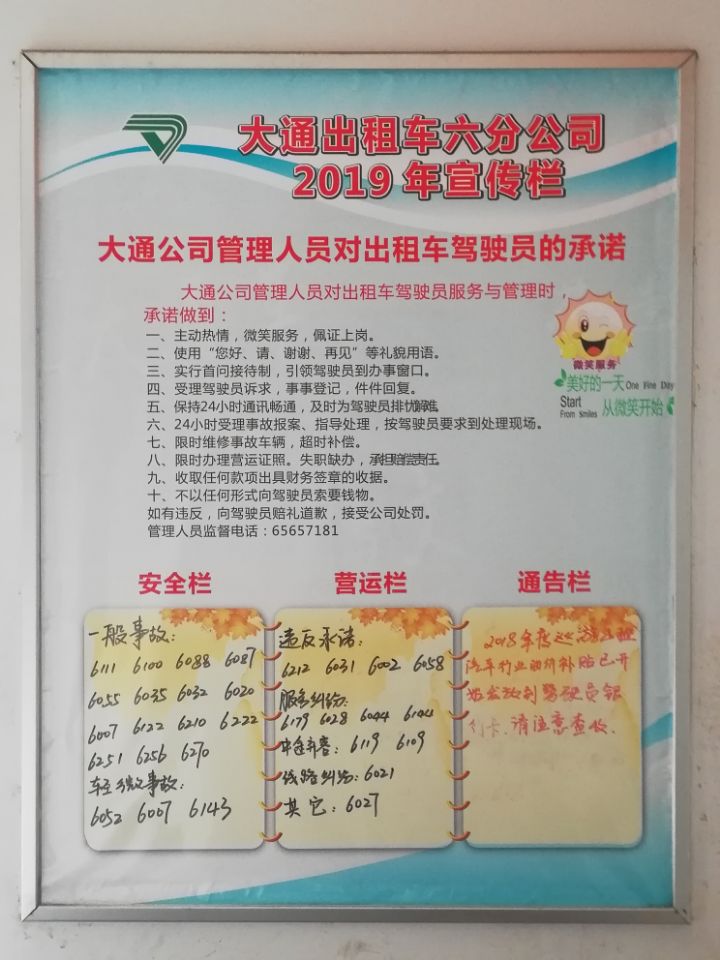 大通出租车六分公司
2019 年宣传栏
大通公司管理人员对出租车驾驶员的承诺
大通公司管理人员对出租车驾驶员服务与管理时，
承诺做到：
一、主动热情，微笑服务，佩证上岗。
二、使用“您好、请、谢谢、再见”等礼貌用语。
三、实行首问接待制，引领驾驶员到办事窗口。
四、受理驾驶员诉求，事事登记，件件回复。
五、保持24小时通讯畅通，及时为驾驶员排忧解难。
六、24小时受理事故报案、指导处理，按驾驶员要求到处理现场。
七、限时维修事故车辆，超时补偿。
八、限时办理营运证照。失职缺办，承担赔偿责任。
九、收取任何款项出具财务签章的收据。
十、不以任何形式向驾驶员索要钱物。
如有违反，向驾驶员赔礼道歉，接受公司处罚。
管理人员监督电话：65657181
微笑服务
美好的一天 One Fine Day
Start
From Smiles 从微笑开始
安全栏
一般事故：
6111 6100 6088 6087
6055 6035 6032 6020
6007 6122 6210 6222
6251 6256 6270
轻微事故：
6052 6007 6143
营运栏
违反承诺：
6212 6031 6002 6058
服务纠纷：
6179 6028 6044 6144
中途弃客：6119 6109
线路纠纷：6021
其它：6027
通告栏
2018年度
汽车行业油补补贴已开
始发放到驾驶员银
行卡.请注意查收.